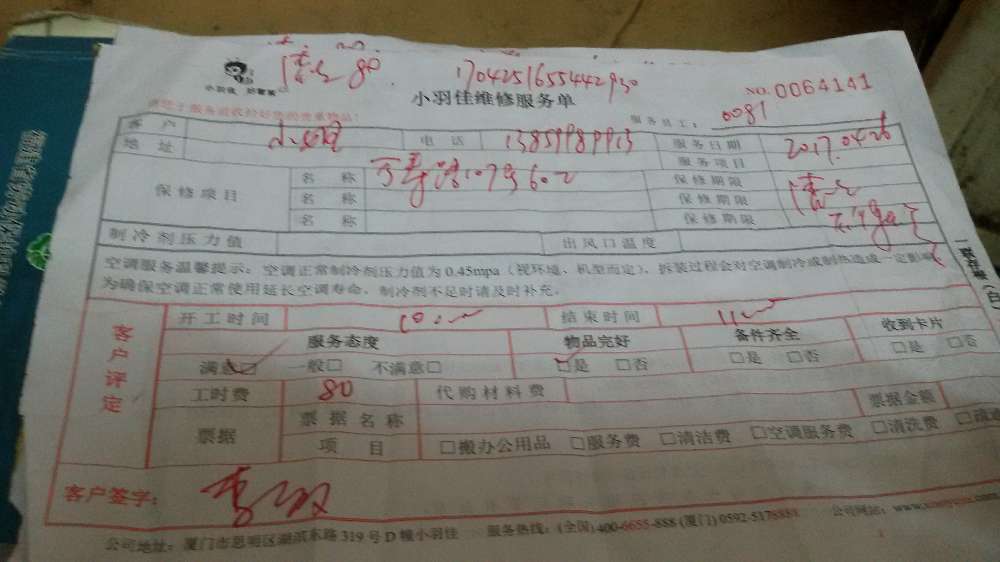 80
1704251655442930
小羽佳 好管家
小羽佳维修服务单
NO. 0064141
服务员工: 0081
客户 电话 13859989913 服务日期 2017.04.26
地址 服务项目
保修项目 名称 万寿路107号602 保修期限
名称 保修期限
名称 保修期限
制冷剂压力值 出风口温度
空调服务温馨提示: 空调正常制冷剂压力值为0.45mpa (视环境、机型而定), 拆装过程会对空调制冷或制热造成一定影响
为确保空调正常使用延长空调寿命, 制冷剂不足时请及时补充。
客户评定
开工时间 10: 结束时间 11:
服务态度 物品完好 备件齐全 收到卡片
满意□ 一般□ 不满意□ □是 □否 □是 □否 □是 □否
工时费 80 代购材料费 票据金额
票据 票据名称
项目 □搬办公用品 □服务费 □清洁费 □空调服务费 □清洗费
客户签字:
公司地址: 厦门市思明区湖滨东路319号D幢小羽佳 服务热线: (全国) 400-6655-888 (厦门) 0592-5178888 公司网站: